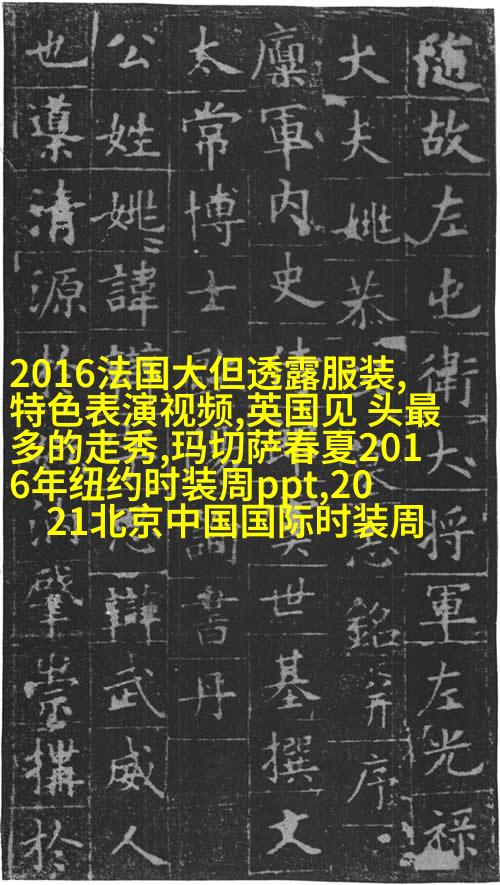 随故左屯衛大将軍左光禄
大夫姚恭銘并序
麋軍内史世基撰文
太常博士書丹
公姓姚諱辯武威人
也導清源肇崇構於
2016法国大但透露服装,
特色表演视频,英国见 头最
多的走秀,玛切萨春夏201
6年纽约时装周ppt,20
21北京中国国际时装周